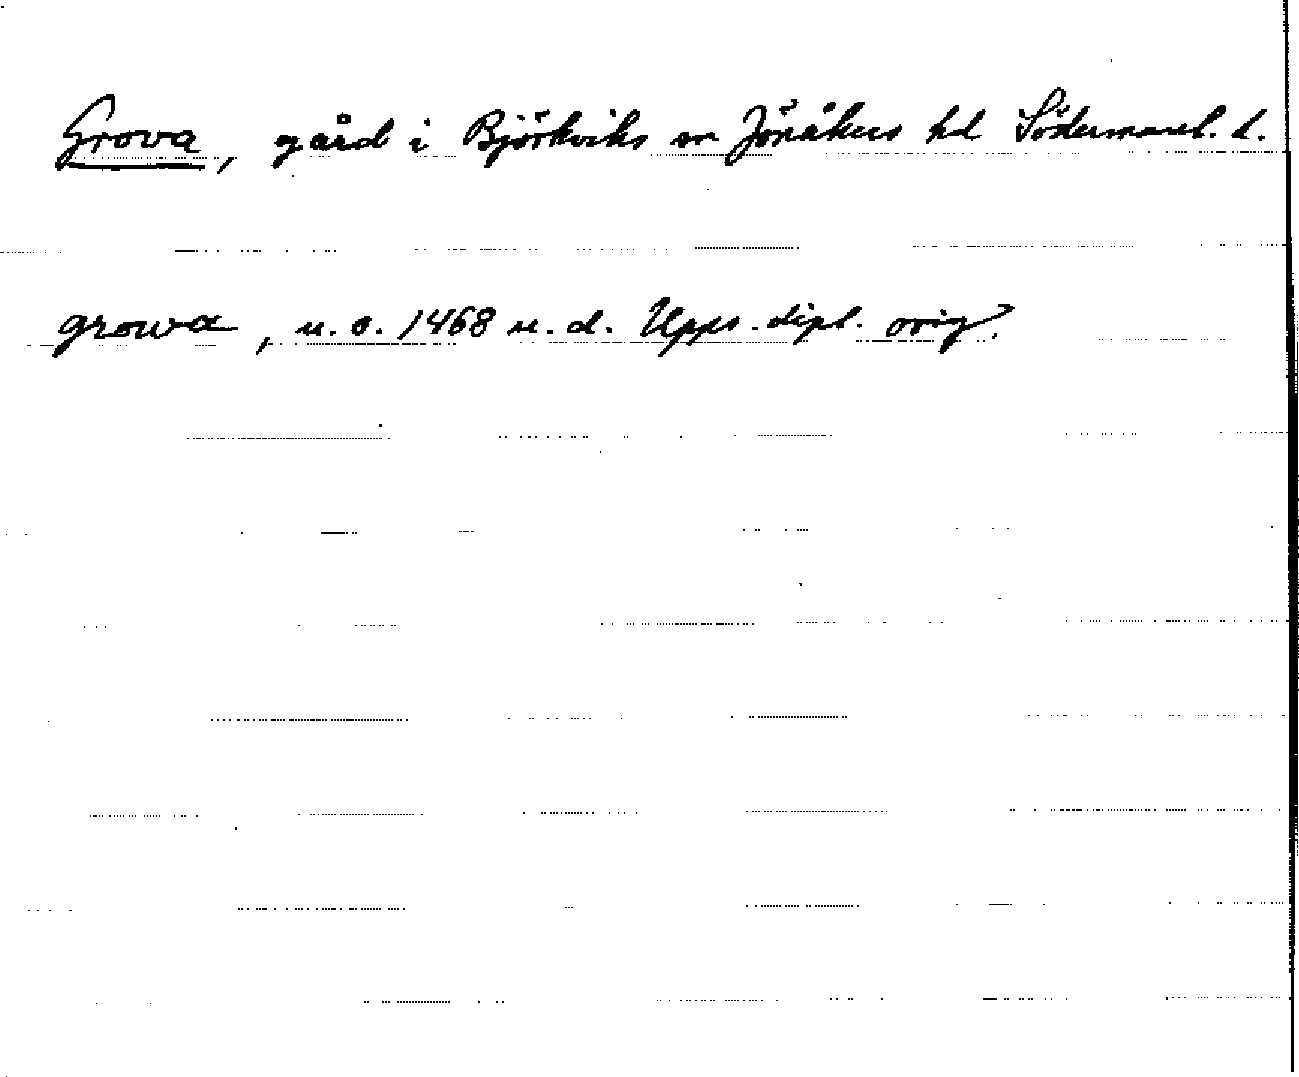 Grova, gård i Björkviks sn Jönåkers hd Södermanl. l.
growa, u. o. 1468 u. d. Upps. dipl. orig.